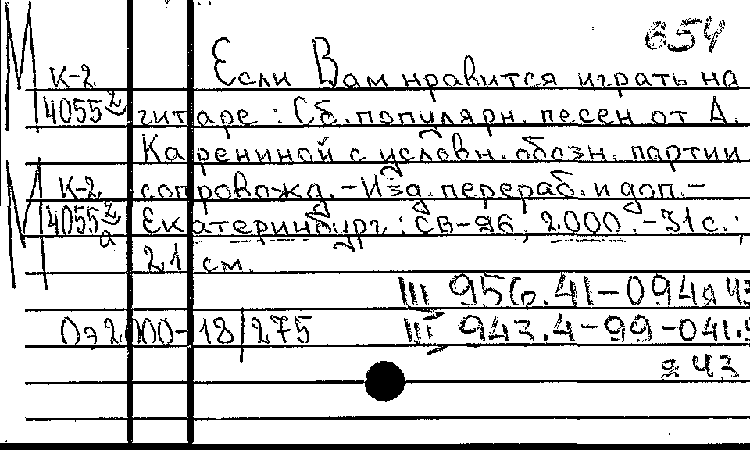 654
М К-2 Если Вам нравится играть на
4055 гитаре : Сб. популярн. песен от А.
Карениной с условн. обозн. партии
М К-2 сопровожд. - Изд. перераб. и доп. -
4055 Екатеринбург : СВ-96, 2000. - 31 с. ;
21 см.
III 956.41-094я43
Оэ2000-18/275 III 943.4-99-041.
я43